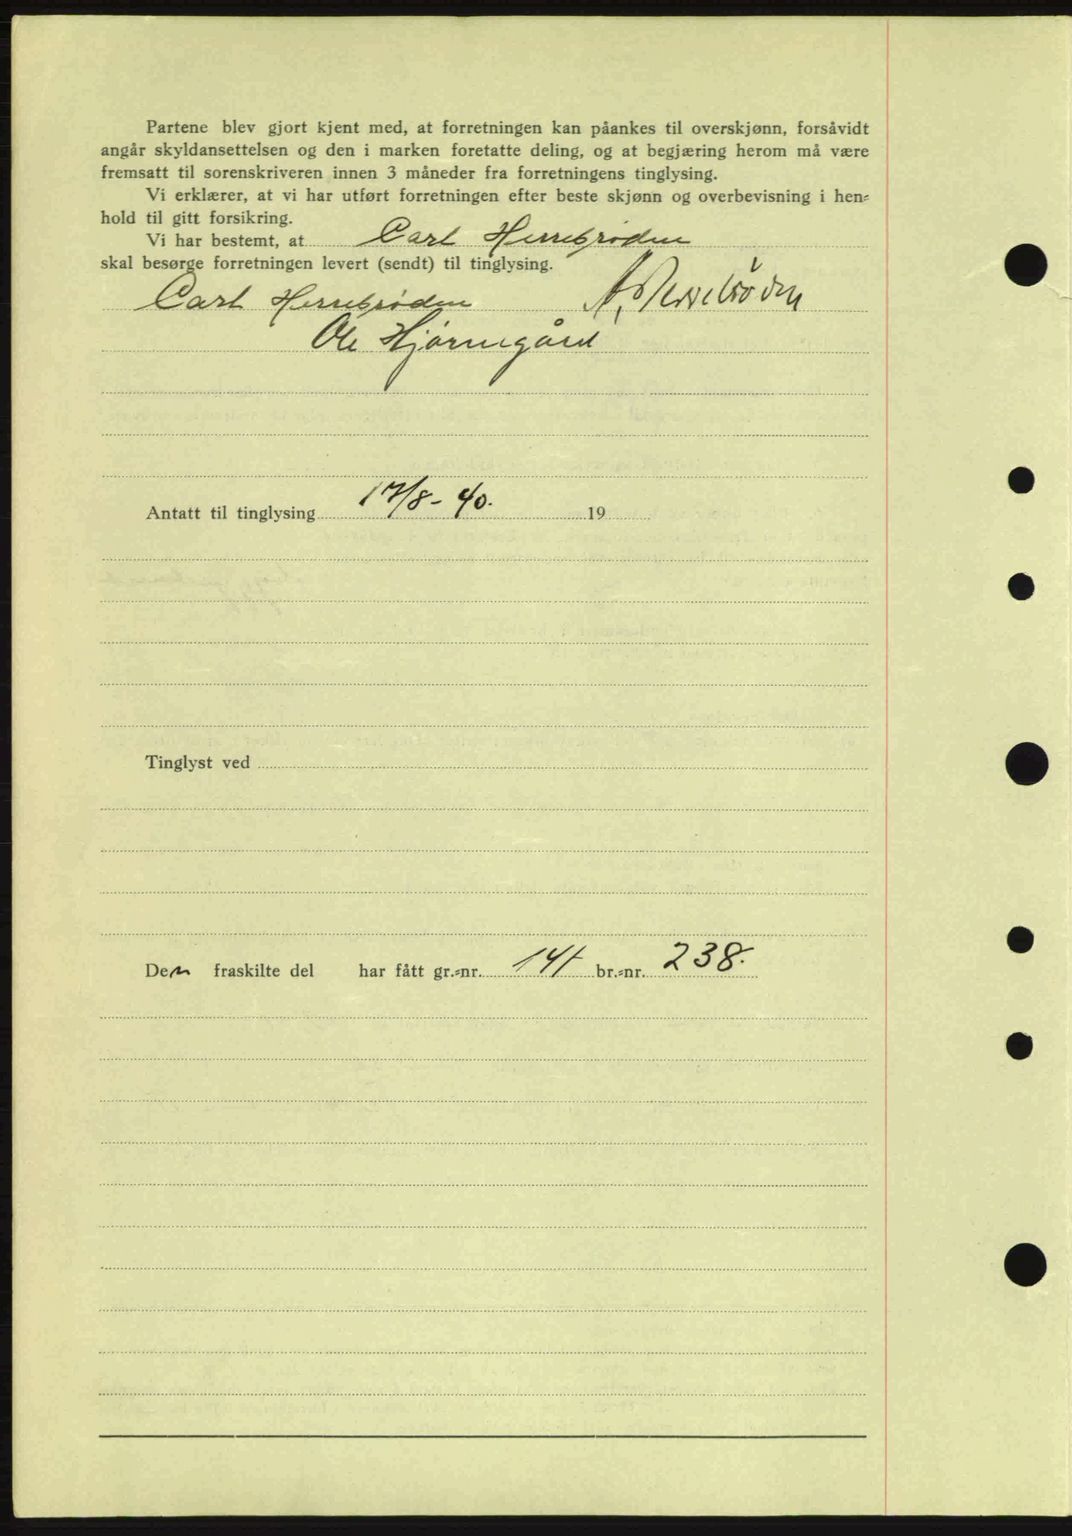 Partene blev gjort kjent med, at forretningen kan påankes til overskjønn, forsåvidt
angår skyldansettelsen og den i marken foretatte deling, og at begjæring herom må være
fremsatt til sorenskriveren innen 3 måneder fra forretningens tinglysing.
Vi erklærer, at vi har utført forretningen efter beste skjønn og overbevisning i hen=
hold til gitt forsikring.
Vi har bestemt, at Carl Herrebrøden
skal besørge forretningen levert (sendt) til tinglysing.
Carl Herrebrøden A. Herrebrøden
Ole Hjørnegård
Antatt til tinglysing 17/8-40. 19
Tinglyst ved
Den fraskilte del har fått gr.=nr. 141 br.=nr. 238.